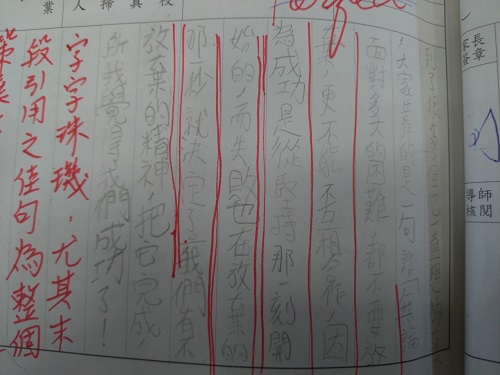 校
真
掃
人
業
長章
家簽
師閱
導核
到了很多
，大家 的是一句話「無論
面對多大的困難，都不要放
棄，更不能不互相合作，因
為成功是從堅持那一刻開
始的，而失敗也在放棄的
那一秒就決定了」我們有不
放棄的精神，把它完成，
所我覺得我們成功了！
字字珠璣，尤其末
段引用之佳句為整個